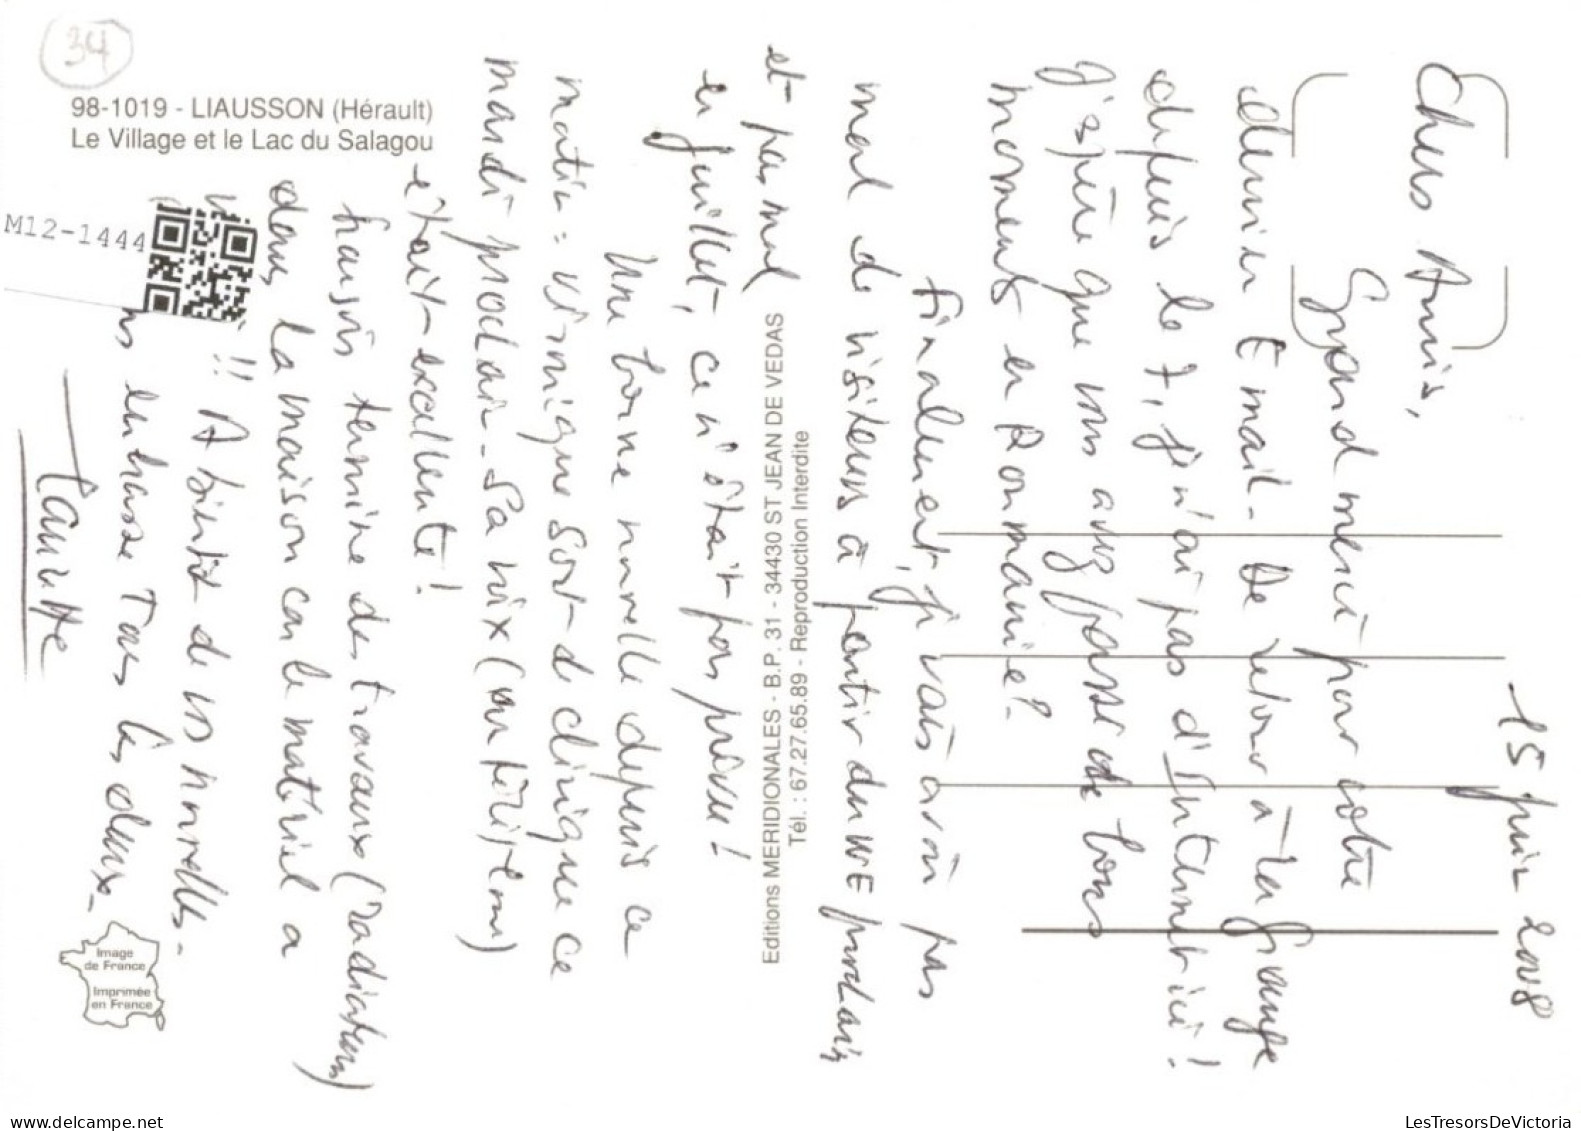 34
98-1019 - LIAUSSON (Hérault)
Le Village et le Lac du Salagou
M12-1444
15 juin 2008
Chers Amis,
Grand merci pour votre
dernier E mail - De retour à la Grange
depuis le 7, je n'ai pas d'Internet ici !
J'espère que vous avez passé de bons
moments en Roumanie ?
Finalement, je vais avoir pas
mal de visiteurs à partir du WE prochain
et pas mal
en juillet, ce n'était pas prévu !
Une bonne nouvelle depuis ce
matin : sort de clinique ce
mardi prochain - Sa voix (au téléphone)
était excellente !
terminé des travaux (radiateurs)
dans la maison car le matériel a
!! A bientôt de vos nouvelles -
embrasse Tous les deux -
Editions MERIDIONALES - B.P. 31 - 34430 ST JEAN DE VEDAS
Tél. : 67.27.65.89 - Reproduction Interdite
Image
de France
Imprimée
en France
www.delcampe.net
LesTresorsDeVictoria